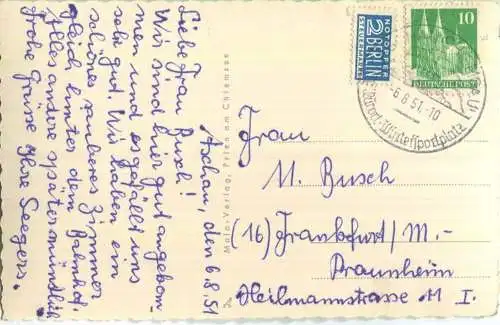 Aschau, den 6.8.51
Liebe Frau Busch!
Wir sind hier gut angekom-
men und es gefällt uns
sehr gut. Wir haben ein
schönes sauberes Zimmer
gleich hinter dem Bahnhof.
Alles andere später mündlich
frohe Grüsse Ihre Seegers.
Mola-Verlag, Prien am Chiemsee
NOTOPFER
2 BERLIN
STEUERMARKE
10
DEUTSCHE POST
-6.8.51.-10
Wintersportplatz
Frau
M. Busch
(16) Frankfurt/M.-
Praunheim
Heilmannstrasse M I.